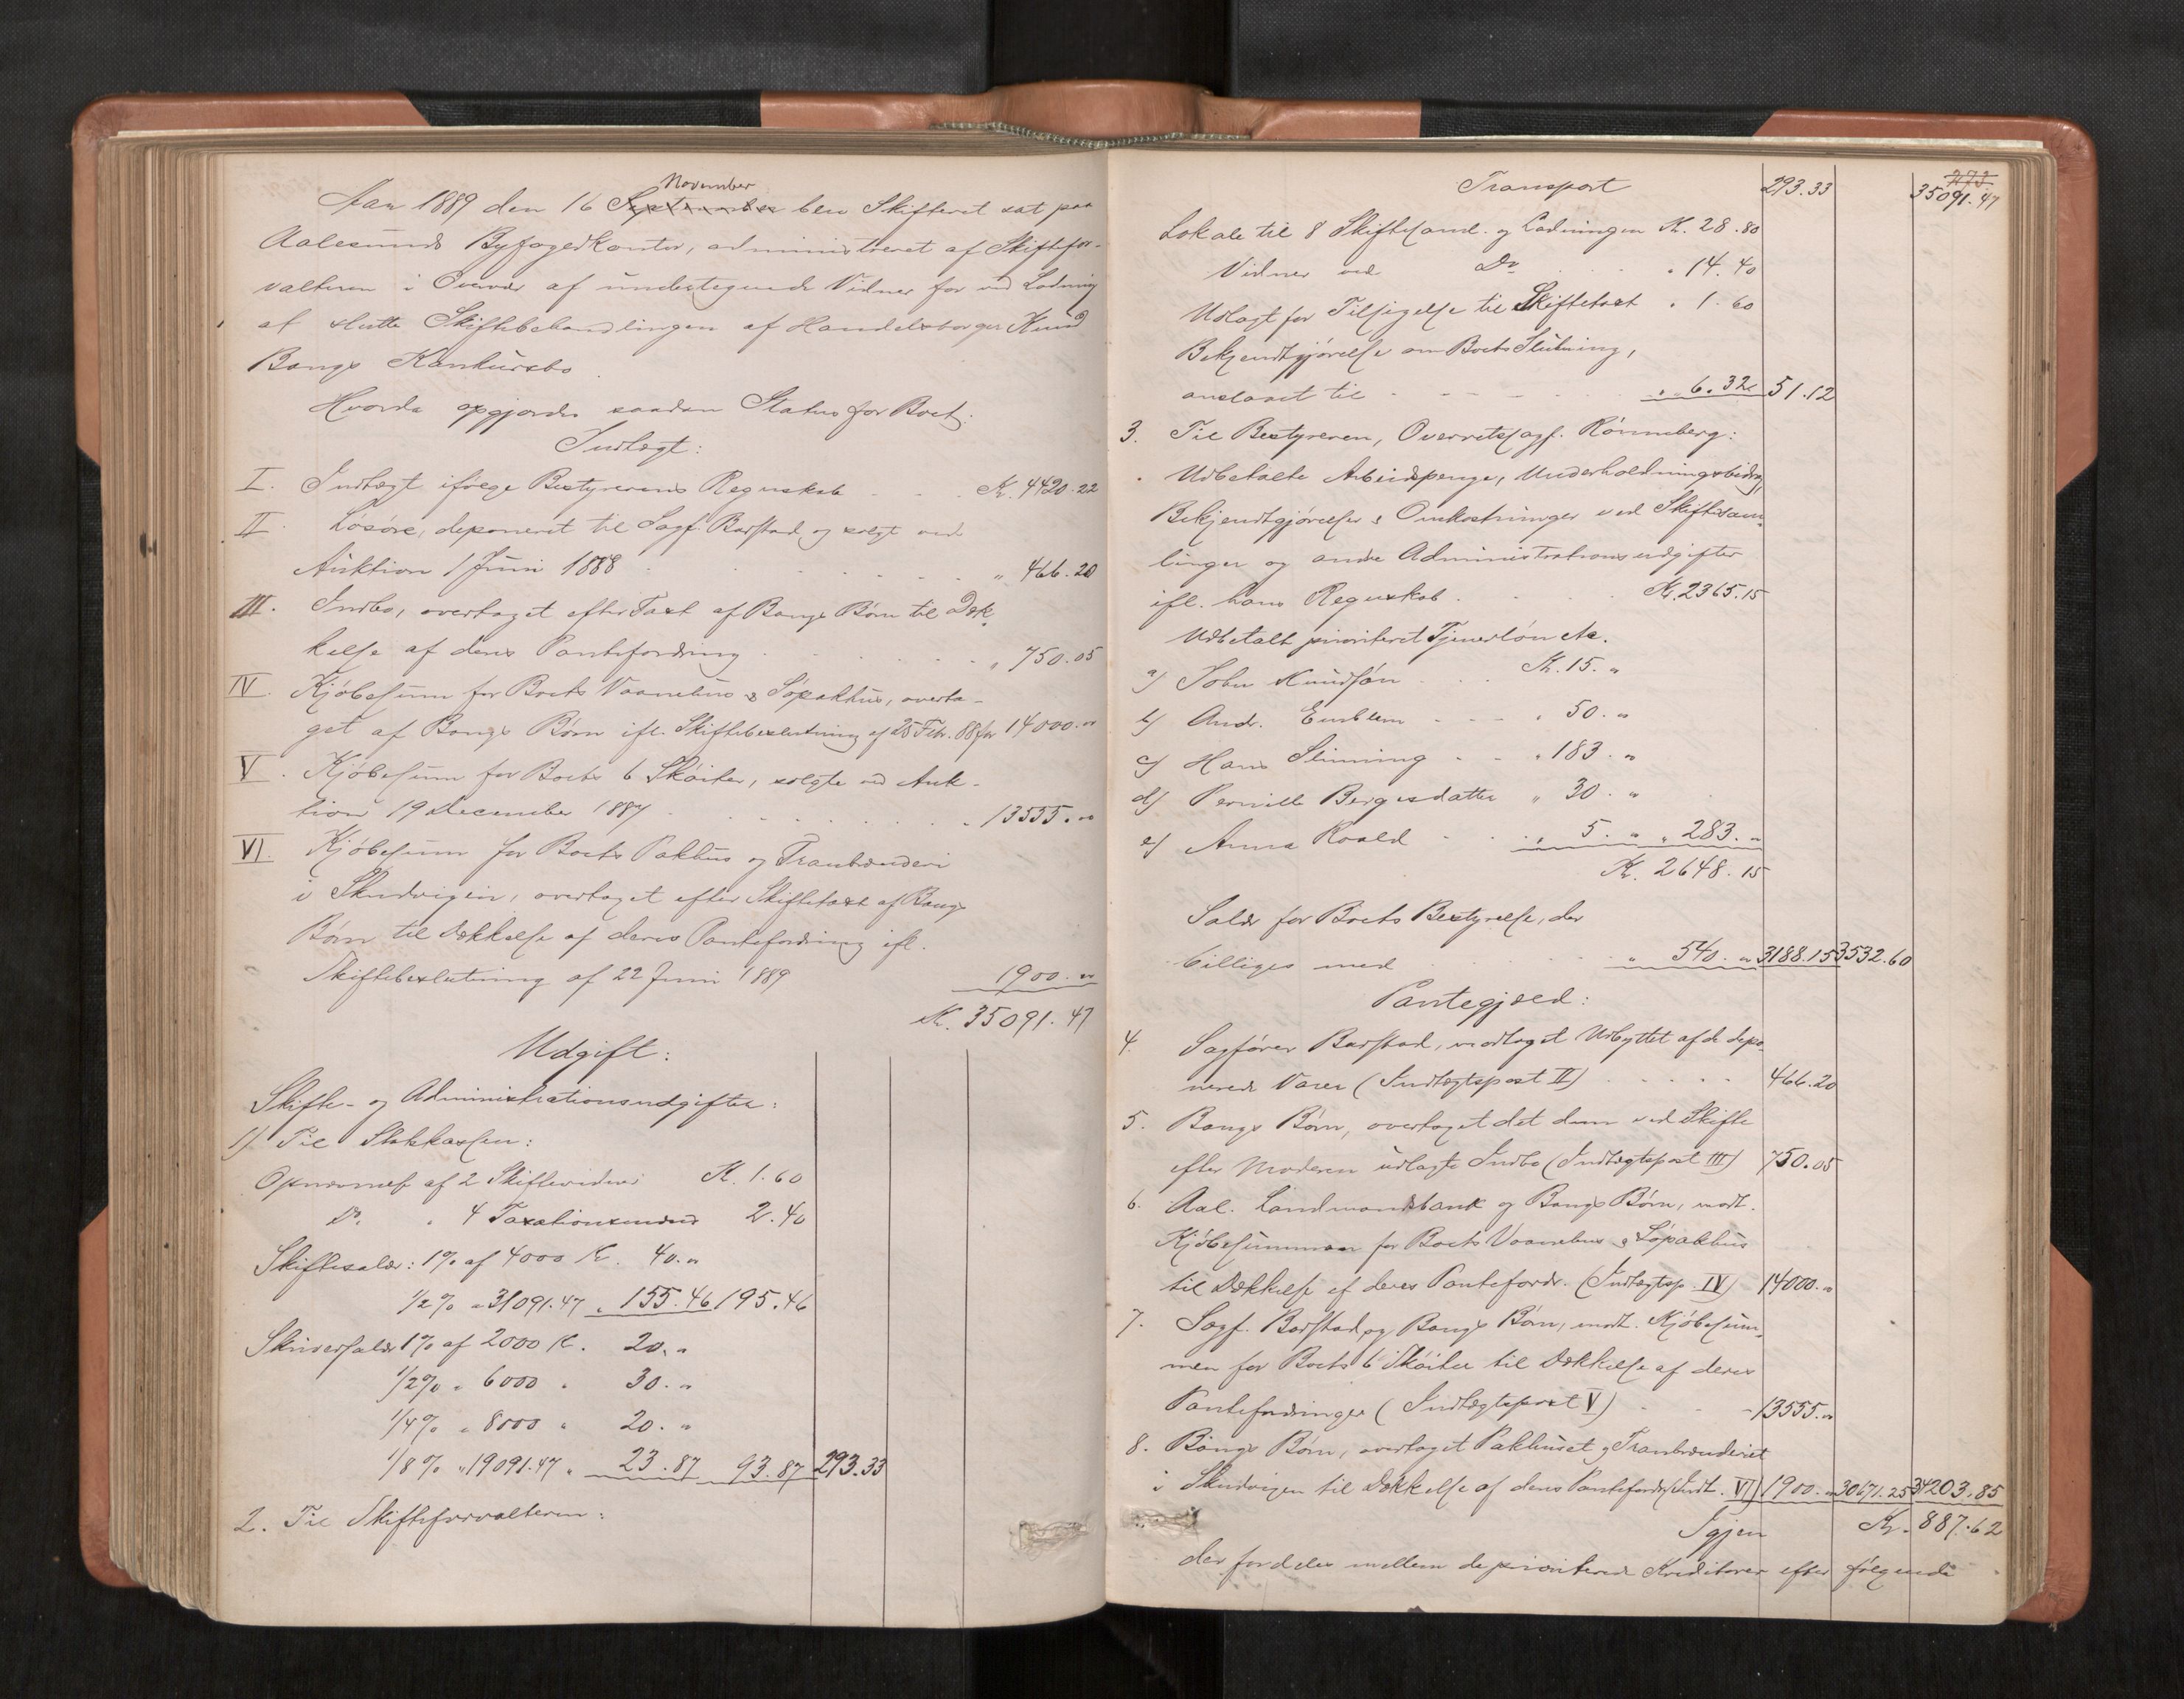 Aar 1889 den 16 September November blev Skifteret sat paa
Aalesunds Byfogedkontor, administreret af Skiftefor-
valteren i Overvær af undertegnede Vidner for ved Lodning
at slutte Skiftebehandlingen af Handelsborger Knud
Bangs Konkursbo.
Hvorda opgjordes saadan Status for Boet:
Indtægt:
I. Indtægt ifølge Bestyrerens Regnskab Kr. 4420.22
II. Løsøre, deponeret til Sagf. Barstad og solgt ved
Auktion 1 Juni 1888 " 466.20
III. Indbo, overtaget efter Taxt af Bangs Børn til Dæk-
kelse af deres Pantefordring " 750.05
IV. Kjøbesum for Boets Vaanehus & Søpakhus, overta-
get af Bangs Børn ifl. Skiftebeslutning af 25 Febr. 88 for 14000. "
V. Kjøbesum for Boets 6 Skøiter, solgte ved Auk-
tion 19 December 1887 " 13555. "
VI. Kjøbesum for Boets Pakhus og Tranbrænderi
i Skudvigen, overtaget efter Skiftetaxt af Bangs
Børn til Dækkelse af deres Pantefordring ifl.
Skiftebeslutning af 22 Juni 1889 1900. "
Kr. 35091.47
Udgift:
Skifte- og Administrationsudgifter:
1). Til Statskassen:
Opnævnelse af 2 Skiftevidner K. 1.60
Do. " 4 Taxationsmænd 2.40
Skiftesalær: 1% af 4000 Kr. 40. "
1/2% " 31091.47 " 155.46 195.46
Skriversalær 1% af 2000 K. 20. "
1/2% " 6000 " 30. "
1/4% " 8000 " 20. "
1/8% " 19091.47 " 23.87 93.87 293.33
2. Til Skifteforvalteren:
273.
Transport 293.33 35091.47
Lokale til 8 Skiftesaml. og Lodningen K. 28.80
Vidner ved Do " 14.40
Udlagt for Tilsigelse til Skiftetaxt " 1.60
Bekjendtgjørelse om Boets Slutning,
anslaaet til " 6.32 51.12
3. Til Bestyreren, Overretssagf. Rønneberg:
Udbetalte Arbeidspenge, Underholdningsbidrag,
Bekjendtgjørelser & Omkostninger ved Skiftesam-
linger og andre Administrationsudgifter
ifl. hans Regnskab Kr. 2365.15
Udbetalt prioriteret Tjenerløn etc.
a) John Knudsøn Kr. 15. "
b) And. Emblem " 50. "
c) Hans Slinning " 183. "
d) Pernille Bergesdatter " 30. "
e) Anna Roald " 5. " " 283. "
Kr. 2648.15
Salær for Boets Bestyrelse, der
billiges med " 540. " 3188.15 3532.60
Pantegjæld:
4. Sagfører Barstad, modtaget Udbyttet af de depo-
nerede Varer (Indtægtspost II) 466.20
5. Bangs Børn, overtaget det dem ved Skifte
efter Moderen udlagte Indbo (Indtægtspost III) 750.05
6. Aal. Landmandsbank og Bangs Børn, modt.
Kjøbesummen for Boets Vaanehus & Søpakhus
til Dækkelse af deres Pantefordr. (Indtægtsp. IV) 14000. "
7. Sagf. Barstad og Bangs Børn, modt. Kjøbesum-
men for Boets 6 Skøiter til Dækkelse af deres
Pantefordringer (Indtægtspost V) 13555. "
8. Bangs Børn, overtaget Pakhuset & Tranbrænderiet
i Skudvigen til Dækkelse af deres Pantefordr. (Indt. VI) 1900. " 30671.25 34203.85
Igjen Kr. 887.62
der fordeles mellem de prioriterede Kreditorer efter følgende